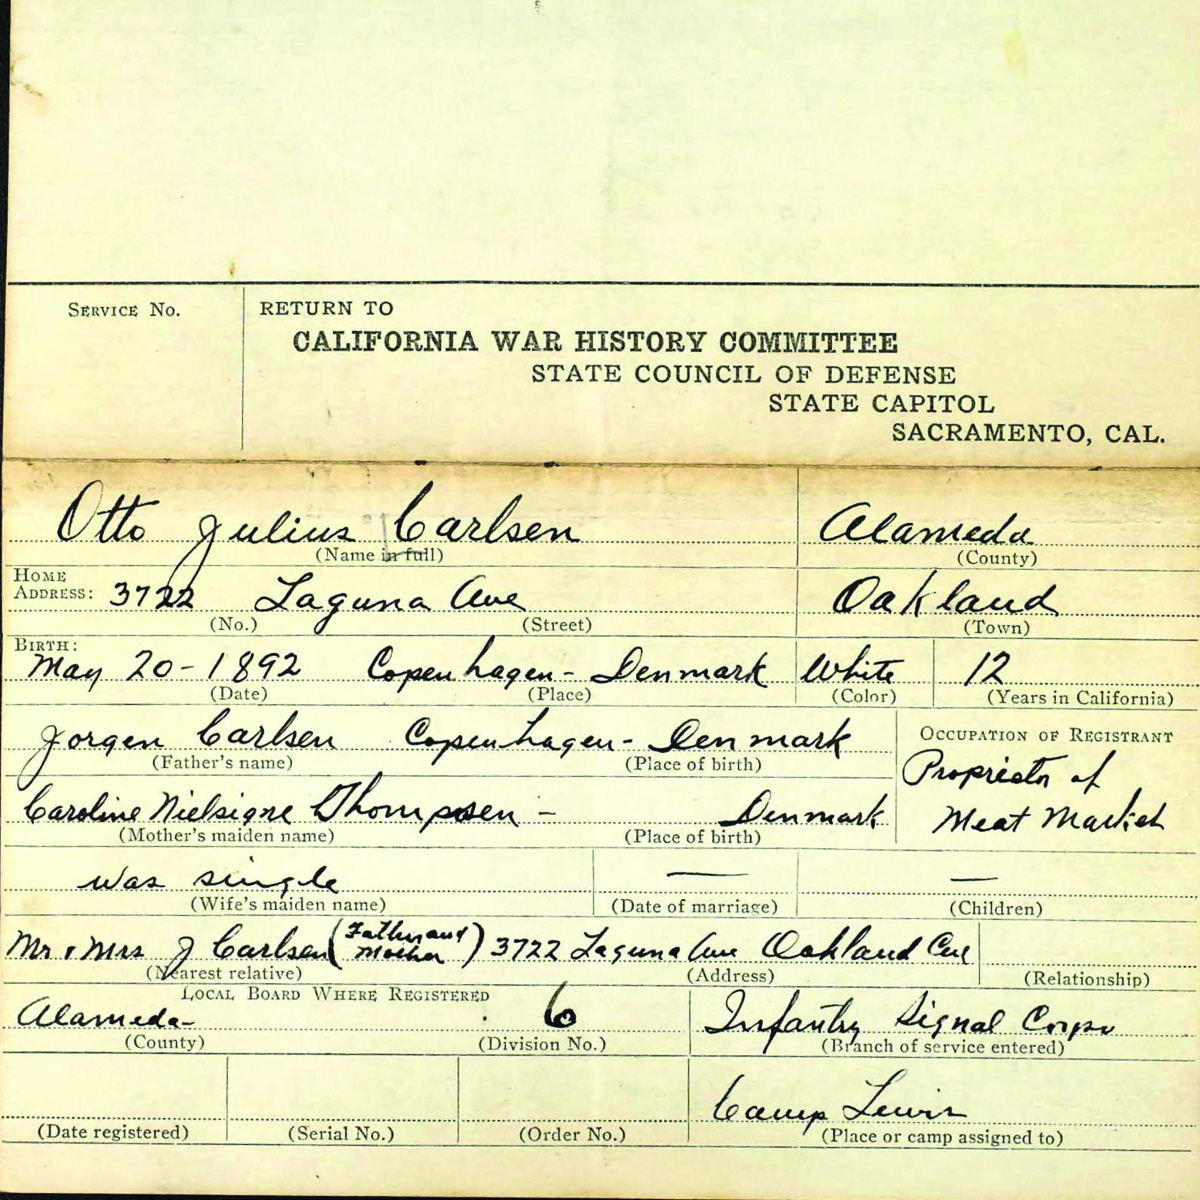 SERVICE NO.
RETURN TO
CALIFORNIA WAR HISTORY COMMITTEE
STATE COUNCIL OF DEFENSE
STATE CAPITOL
SACRAMENTO, CAL.
Otto Julius Carlsen Alameda
(Name in full) (County)
HOME
ADDRESS: 3722 Laguna Ave Oakland
(No.) (Street) (Town)
BIRTH:
May 20-1892 Copenhagen- Denmark White 12
(Date) (Place) (Color) (Years in California)
Jorgen Carlsen Copenhagen- Denmark
(Father's name) (Place of birth)
OCCUPATION OF REGISTRANT
Proprietor of
Meat Market
Caroline Nielsigne Thompsen - Denmark
(Mother's maiden name) (Place of birth)
was single — —
(Wife's maiden name) (Date of marriage) (Children)
Mr & Mrs J Carlsen (Father and Mother) 3722 Laguna Ave Oakland Cal
(Nearest relative) (Address) (Relationship)
LOCAL BOARD WHERE REGISTERED
Alameda- 6 Infantry Signal Corps
(County) (Division No.) (Branch of service entered)
Camp Lewis
(Date registered) (Serial No.) (Order No.) (Place or camp assigned to)